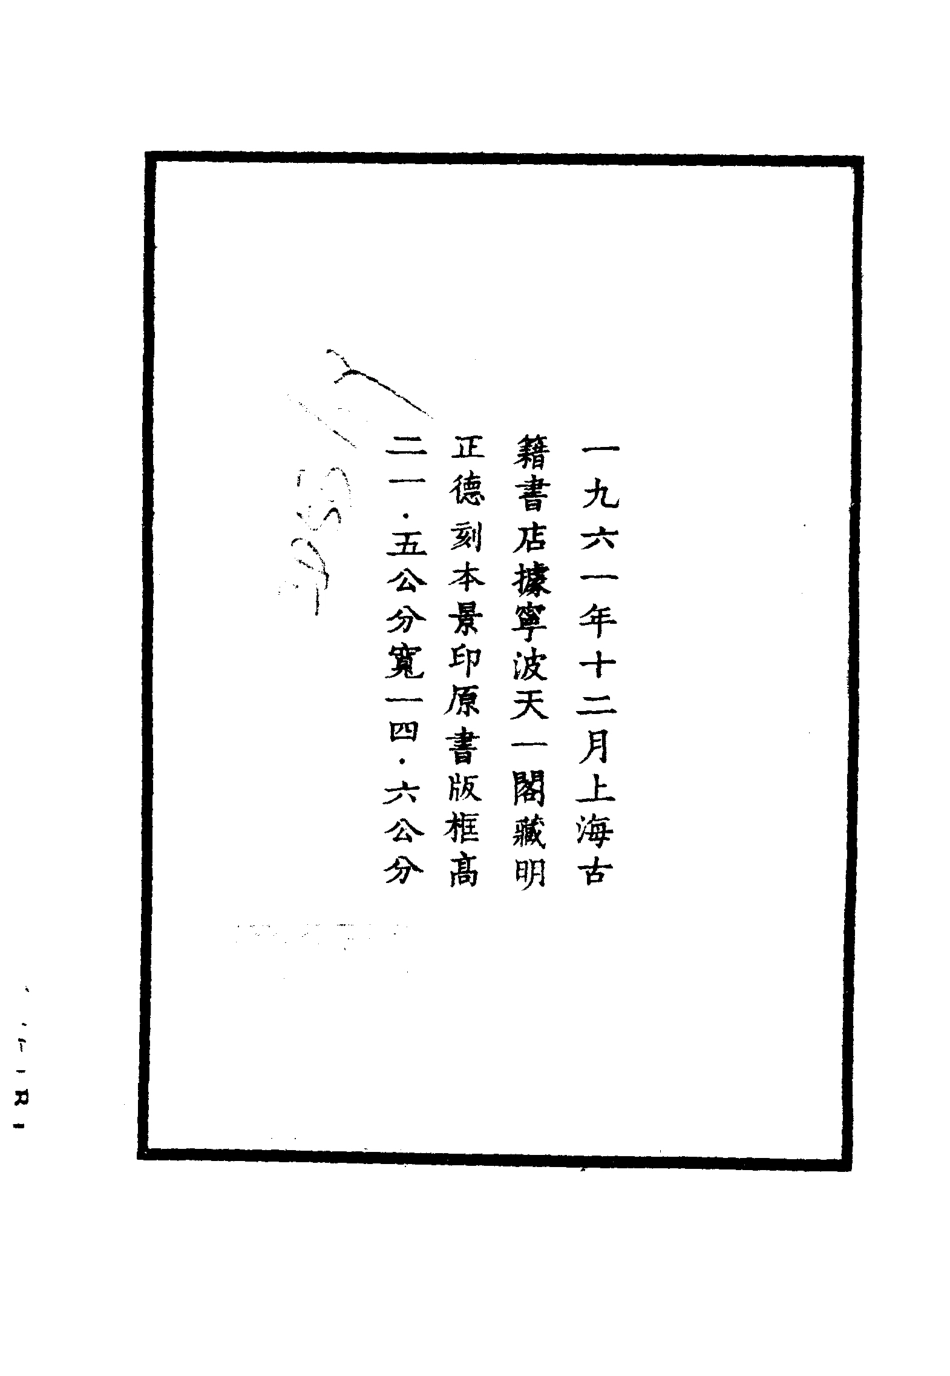 一九六一年十二月上海古
籍書店據寧波天一閣藏明
正德刻本景印原書版框高
二一·五公分寬一四·六公分